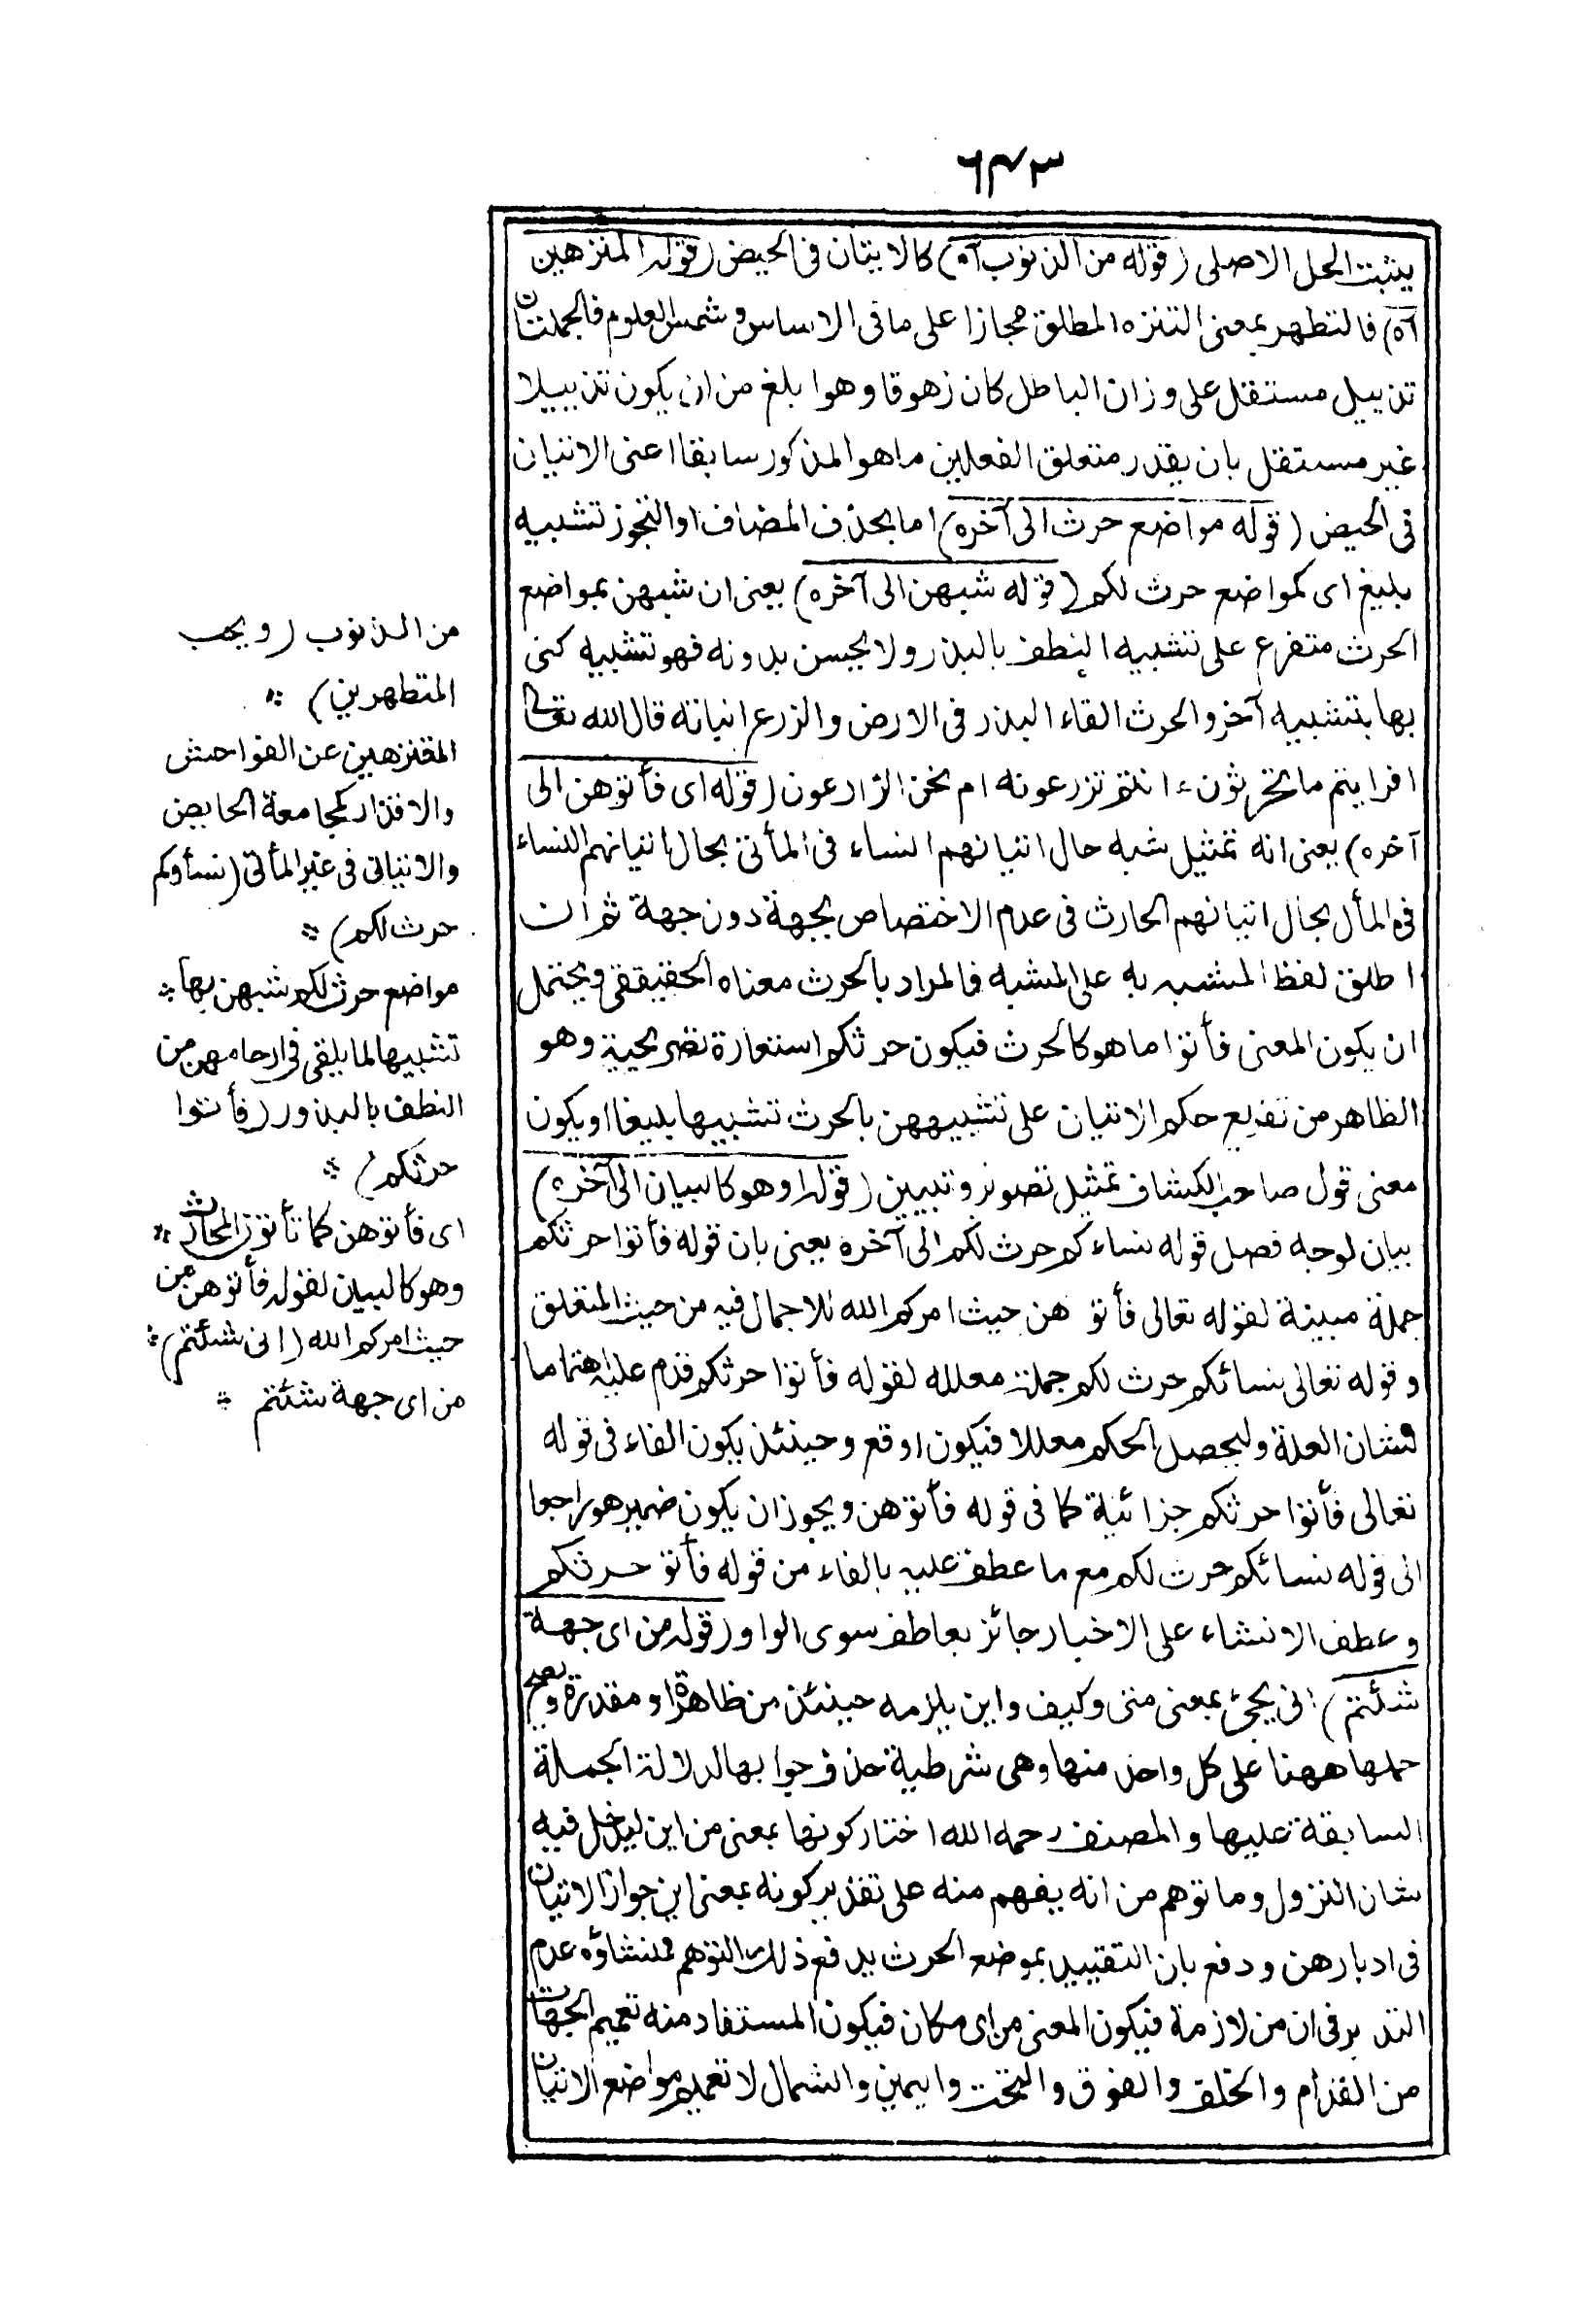 ٦٤٣
يثبت الحل الاصلى (قوله من الذنوب آه) كالايتان فى الحيض (قوله المتنزهين
آه) فالتطهر بمعنى التنزه المطلق مجازا على ما فى الاساس وشمس العلوم فالجملتان
تذييل مستقل على وزان الباطل كان زهوقا وهو ابلغ من ان يكون تذييلا
غير مستقل بان يقدر متعلق الفعلين ما هو المذكور سابقا اعنى الاتيان
فى الحيض (قوله مواضع حرث الى آخره) اما بحذف المضاف او التجوز تشبيه
بليغ اى كمواضع حرث لكم (قوله شبهن الى آخره) يعنى ان شبهن بمواضع
الحرث متفرع على تشبيه النطف بالبذر ولا يحسن بدونه فهو تشبيه كنى
بها بتشبيه آخر والحرث القاء البذر فى الارض والزرع انباته قال الله تعالى
افرايتم ما تحرثون ء انتم تزرعونه ام نحن الزارعون (قوله اى فأتوهن الى
آخره) يعنى انه تمثيل شبه حال اتيانهم النساء فى المأتى بحال اتيانهم النساء
فى المأل بحال اتيانهم الحارث فى عدم الاختصاص بجهة دون جهة ثم ان
اطلق لفظ المشبه به على المشبه فالمراد بالحرث معناه الحقيقى ويحتمل
ان يكون المعنى فأتوا ما هو كالحرث فيكون حرثكم استعارة تصريحية وهو
الظاهر من تفريع حكم الاتيان على تشبيههن بالحرث تشبيها بليغا او يكون
معنى قول صاحب الكشاف تمثيل تصوير وتبيين (قوله وهو كالبيان الى آخره)
بيان لوجه فصل قوله نساءكم حرث لكم الى آخره يعنى بان قوله فأتوا حرثكم
جملة مبينة لقوله تعالى فأتو هن حيث امركم الله للاجمال فيه من حيث المتعلق
وقوله تعالى نسائكم حرث لكم جملة معلله لقوله فأتوا حرثكم قدم عليه اهتماما
بشان العلة وليحصل الحكم معللا فيكون اوقع وحينئذ يكون الفاء فى قوله
تعالى فأتوا حرثكم جزائية كما فى قوله فأتوهن ويجوز ان يكون ضمير هو راجعا
الى قوله نسائكم حرث لكم مع ما عطف عليه بالفاء من قوله فأتو حرثكم
وعطف الانشاء على الاخبار جائز بعاطف سوى الواو (قوله من اى جهة
شئتم) انى يجئ بمعنى متى وكيف واين يلزمه حينئذ من ظاهرة او مقدرة ويصح
حملها ههنا على كل واحد منها وهى شرطية حذف جوابها لدلالة الجملة
السابقة عليها والمصنف رحمه الله اختار كونها بمعنى من اين ليدخل فيه
شان النزول وما توهم من انه يفهم منه على تقدير كونه بمعنى اين جواز الاتيان
فى ادبارهن ودفع بان التقييد بموضع الحرث يدفع ذلك التوهم فمنشاؤه عدم
التدبر فى ان من لازمة فيكون المعنى من اى مكان فيكون المستفاد منه تعميم الجهات
من القدام والخلف والفوق والتحت واليمين والشمال لا تعميم مواضع الاتيان
من الذنوب (ويحب
المتطهرين)
المتنزهين عن الفواحش
والاقذار كمجامعة الحايض
والاتياتى فى غير المأتى (نسأوكم
حرث لكم)
مواضع حرث لكم شبهن بها
تشبيها لما يلقى فى ارحامهن من
النطف بالبذور (فأتوا
حرثكم)
اى فأتوهن كما تأتون المحارث
وهو كالبيان لقوله فأتوهن من
حيث امركم الله (انى شئتم)
من اى جهة شئتم